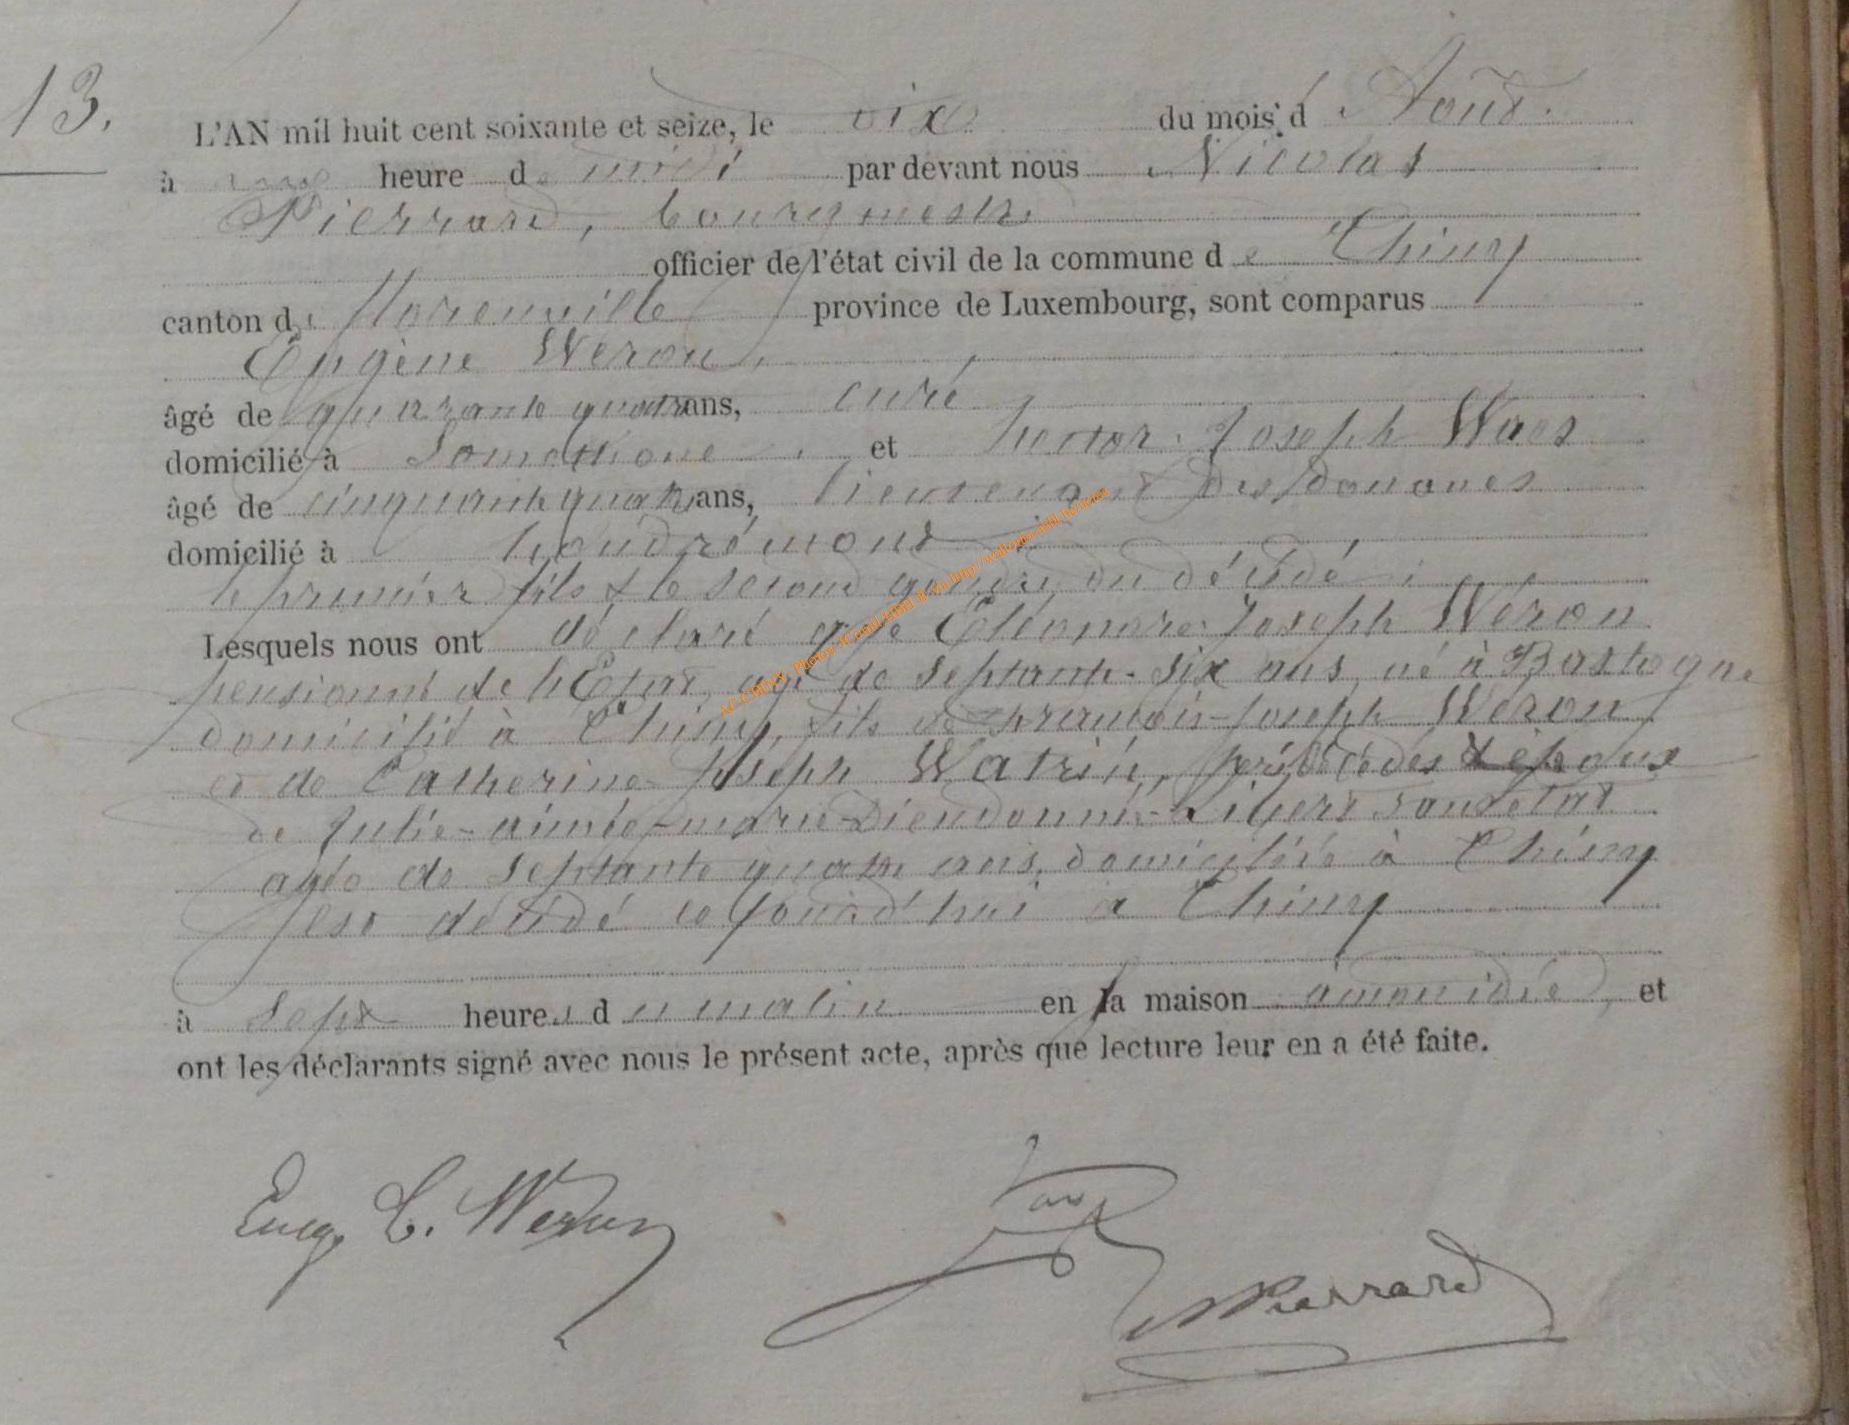 13.
L'AN mil huit cent soixante et seize, le dix du mois d Août.
à une heure de midi par devant nous Nicolas
Pierrard, bourgmestre
officier de l'état civil de la commune de Chiny
canton de florenville province de Luxembourg, sont comparus
Eugène Weron,
âgé de quarante quatre ans, curé
domicilié à et hector-Joseph Waes
âgé de cinquante quatre ans, lieutenant des douanes
domicilié à houdrémont
le premier fils & le second gendre du décédé
Lesquels nous ont déclaré que Eléonore-Joseph Wéron
pensionné de l'Etat, agé de septante-six ans, né à Bastogne
domicilié à Chiny, fils de francois-Joseph Wéron
et de Catherine-Joseph Watrin, prédécédés & époux
de Julie-aimée-marie-Dieudonnée-Ligert sans état
agée de septante quatre ans, domiciliée à Chiny
est décédé ce jourd'hui à Chiny
à sept heures du matin en la maison et
ont les déclarants signé avec nous le présent acte, après que lecture leur en a été faite.
Eug. C. Weron
Waes
NPierrard